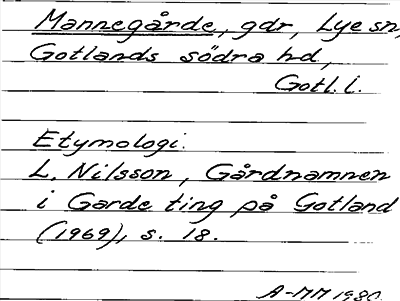 Mannegårde, gdr, Lye sn,
Gotlands södra hd,
Gotl. l.
Etymologi.
L. Nilsson, Gårdnamnen
i Garde ting på Gotland
(1969), s. 18.
A-MM 1980.